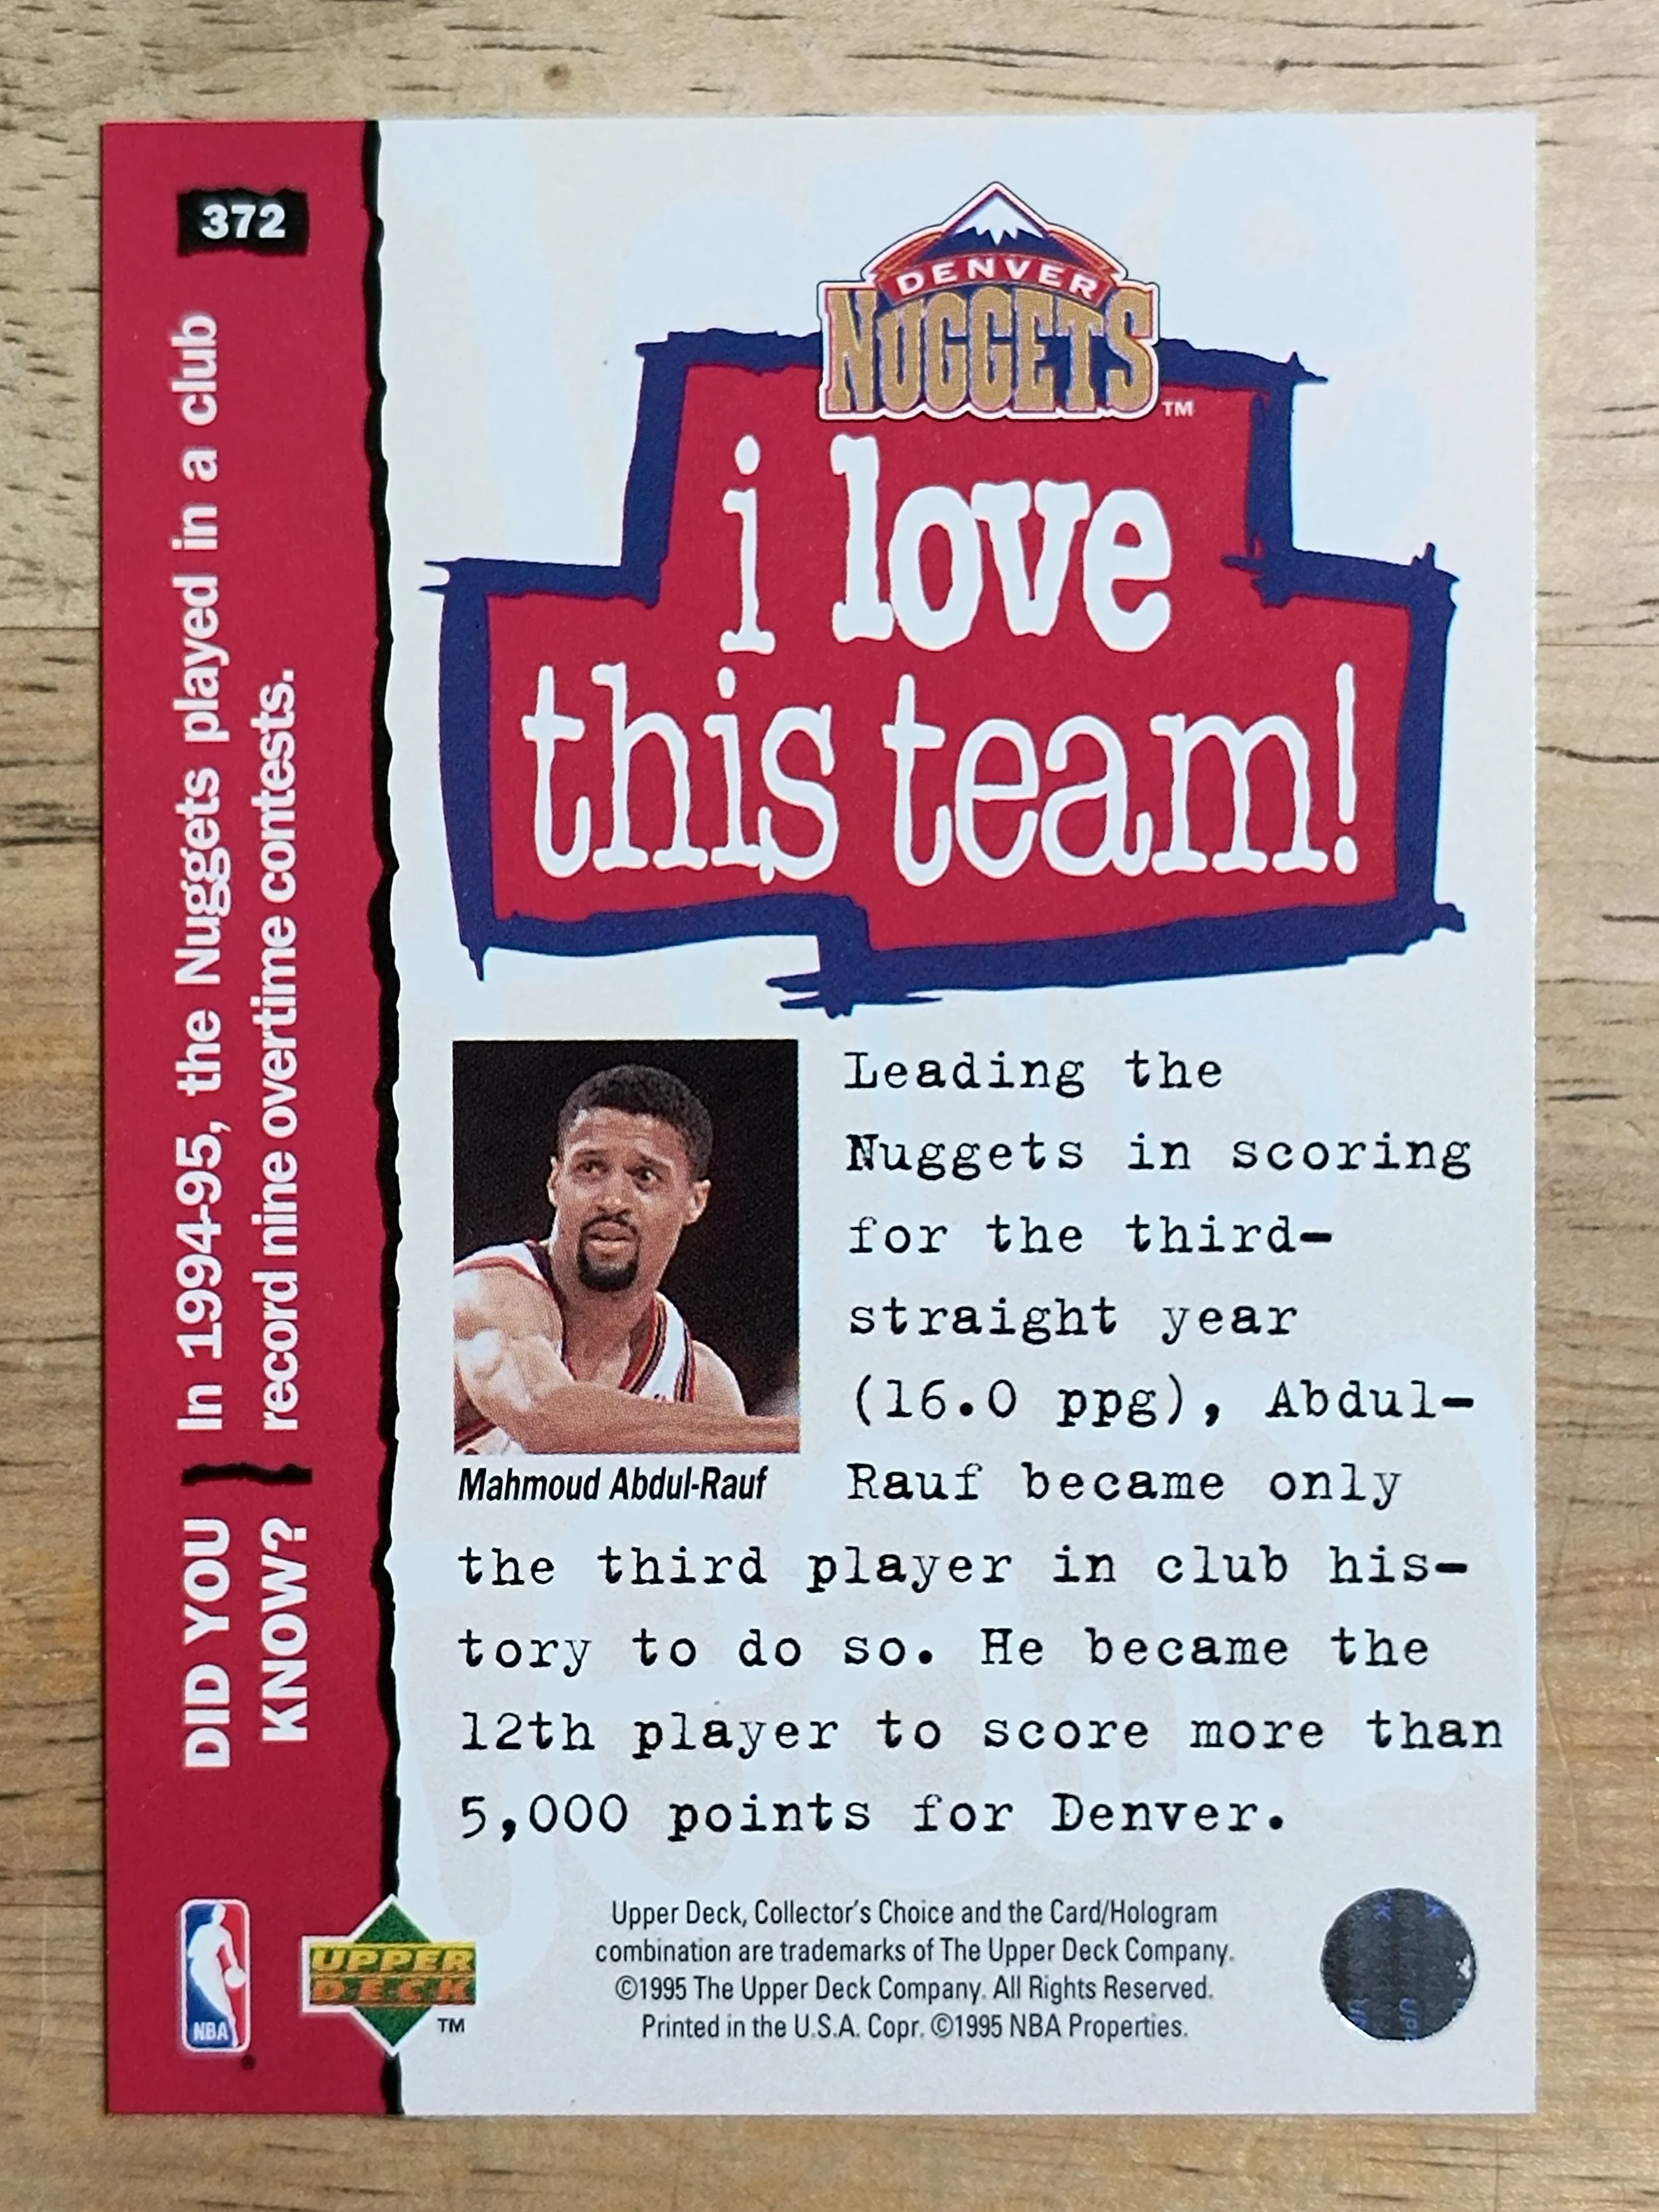 372
DENVER
NUGGETS
TM
i love
this team!
DID YOU
KNOW?
In 1994-95, the Nuggets played in a club
record nine overtime contests.
Mahmoud Abdul-Rauf
Leading the
Nuggets in scoring
for the third-
straight year
(16.0 ppg), Abdul-
Rauf became only
the third player in club his-
tory to do so. He became the
12th player to score more than
5,000 points for Denver.
NBA
®
UPPER
DECK
TM
Upper Deck, Collector's Choice and the Card/Hologram
combination are trademarks of The Upper Deck Company.
©1995 The Upper Deck Company. All Rights Reserved.
Printed in the U.S.A. Copr. ©1995 NBA Properties.